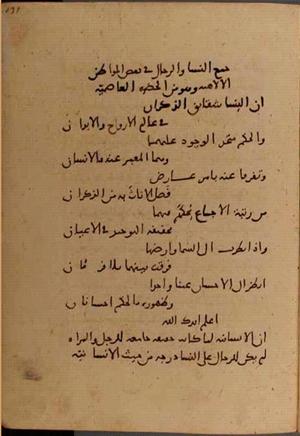 جمع النسا والرجال في بعض المواطن
الالهية وهو من الحضرة العاصمية
ان النسا شقائق الذكران
في عالم الارواح والابدان
والحكم متحد الوجود عليهما
وهما المعبر عنه بالانسان
وتفرقا عنه بامر عارض
فصل الاناث به من الذكران
من رتبة الاجماع يحكم فيهما
بحقيقة التوحيد في الاعيان
واذا نظرت الى السما وارضها
فرقت بينهما بلا فرقان
انظر الى الاحسان عينا واحدا
وظهوره بالحكم احسانان
اعلم ايدك الله
ان الانسانية لما كانت حقيقة جامعة للرجل والمراة
لم يكن للرجال على النسا درجة من حيث الانسانية